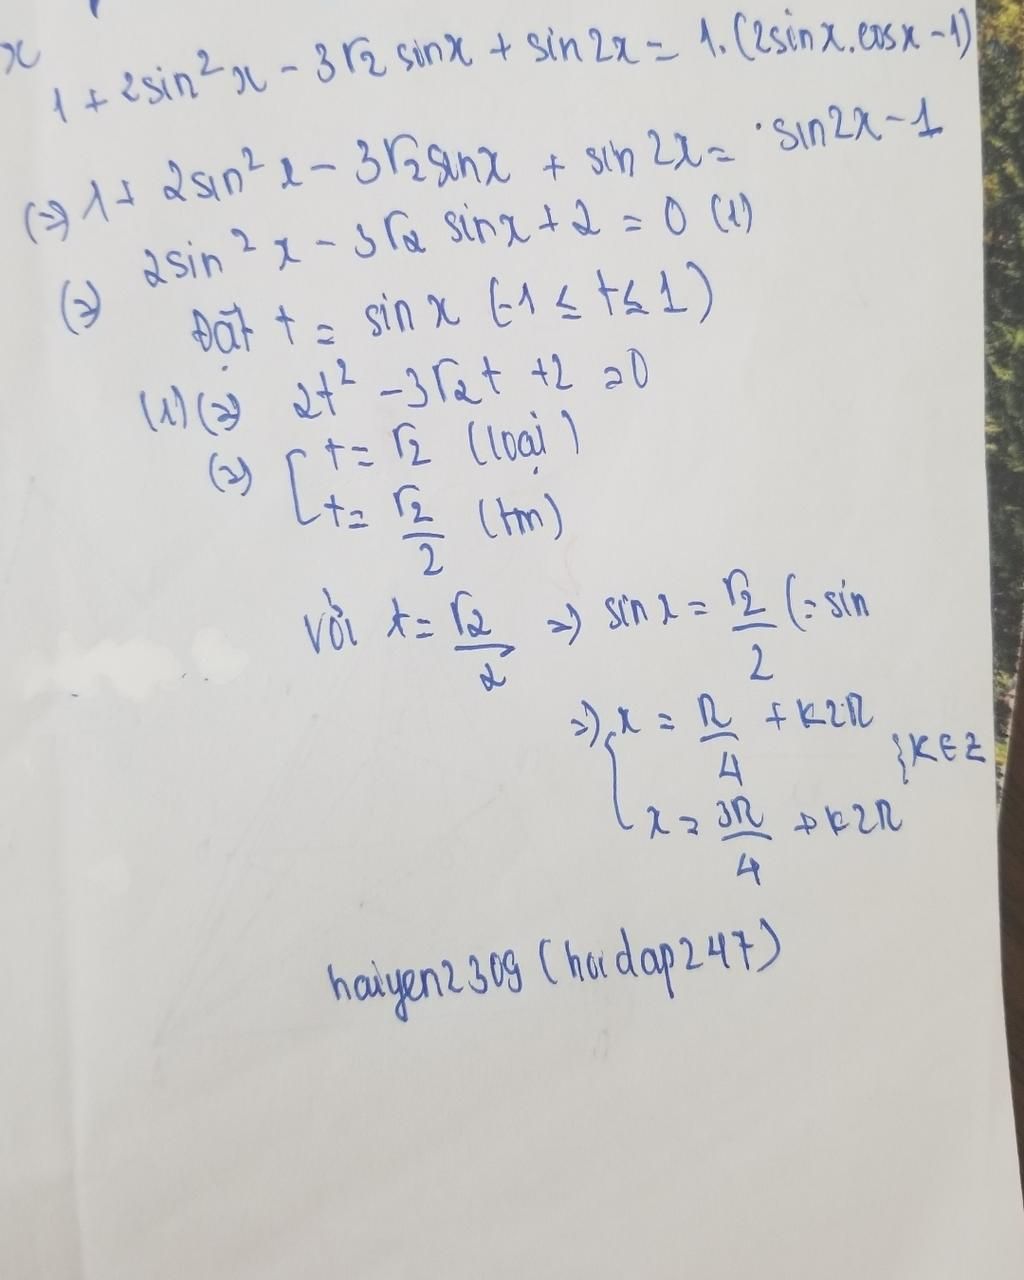 x
1 + 2sin²x - 3√2 sinx + sin2x = 1.(2sinx.cosx - 1)
(=) 1 + 2sin²x - 3√2 sinx + sin2x = sin2x - 1
(=) 2sin²x - 3√2 sinx + 2 = 0 (1)
Đặt t = sin x (-1 ≤ t ≤ 1)
(1) (=) 2t² - 3√2t + 2 = 0
(=) [ t = √2 (loại)
t = √2/2 (tm)
Với t = √2/2 => sin x = √2/2 (= sin
=) x = π/4 + k2π
} k ∈ Z
x = 3π/4 + k2π
haiyen2309 (hoidap247)